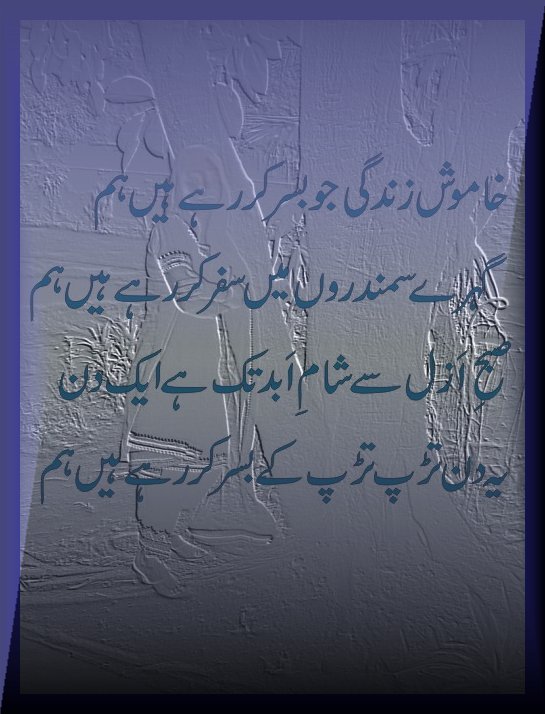 خاموش زندگی جو بسر کر رہے ہیں ہم
گہرے سمندروں میں سفر کر رہے ہیں ہم
صبحِ اَزل سے شامِ اَبد تک ہے ایک دن
یہ دن تڑپ تڑپ کے بسر کر رہے ہیں ہم